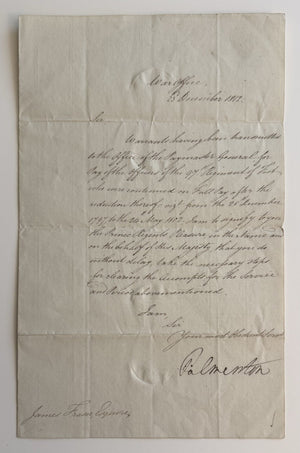 War Office,
8 December 1817.
Sir
Warrants having been transmitted
to the Office of the Paymaster General for
Pay of the Officers of the 97th Regiment of Foot
who were continued on Full Pay after the
reduction thereof viz.t from the 25 December
to the 24 May I am to signify to you
the Prince Regent's Pleasure in the Name and
on the behalf of His Majesty, that you do
without delay take the necessary steps
for clearing the Accompts for the Service
and Period abovementioned
I am
Sir
Your most Obedient Serv.t
Palmerston
James Esquire